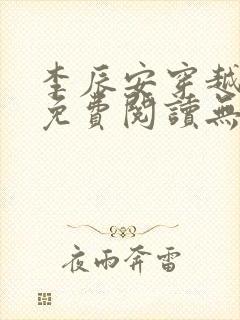 李辰安穿越
免費閱讀無
夜雨奔雷